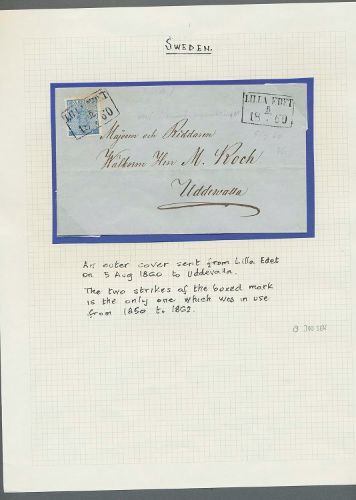 SWEDEN.
LILLA EDET
8
18 60
LILLA EDET
8
18 60
Majoren och Riddaren
Herr M. Koch
Uddevalla
An outer cover sent from Lilla Edet
on 5 Aug 1860 to Uddevalla.
The two strikes of the boxed mark
is the only one which was in use
from 1850 to 1862.